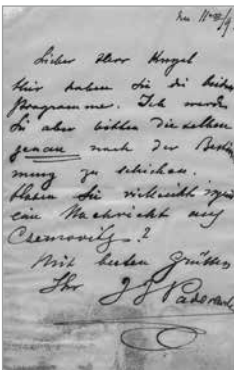 Lieber Herr Kugel
Hier haben Sie die beiden
Programme. Ich werde
Sie aber bitten dieselben
genau nach der Bestim
mung zu schicken.
Haben Sie vielleicht
eine Nachricht aus
Czernovitz?
Mit besten Grüßen
Ihr I J Paderewski